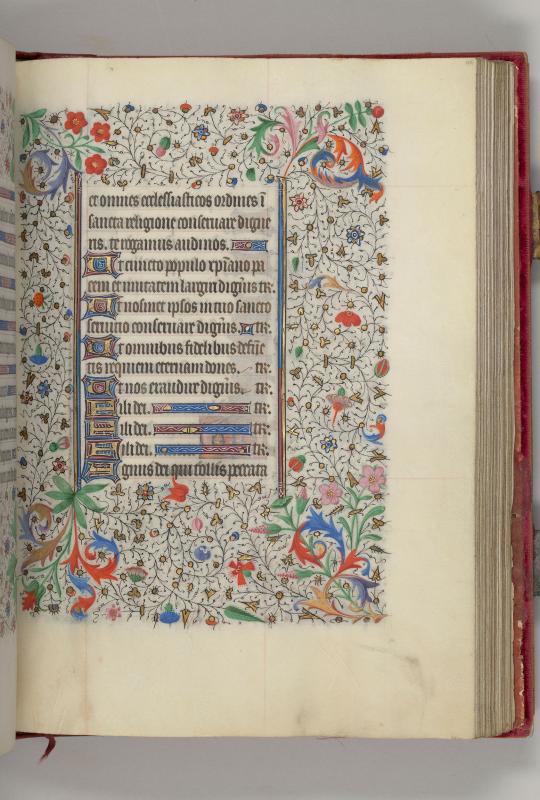 et omnes ecclesiasticos ordines ī
sancta religione conseruare digne
ris. te rogamus audi nos.
Et cuncto populo xp̄iano pa
cem et unitatem largiri digīs tē.
Et nosmet ipsos in tuo sancto
seruicio conseruare digīs. tē.
Et omnibus fidelibus defūc
tis requiem eternam dones. tē.
Et nos exaudire digīs. tē.
Fili dei. tē.
Fili dei. tē.
Fili dei. tē.
Agnus dei qui tollis peccata